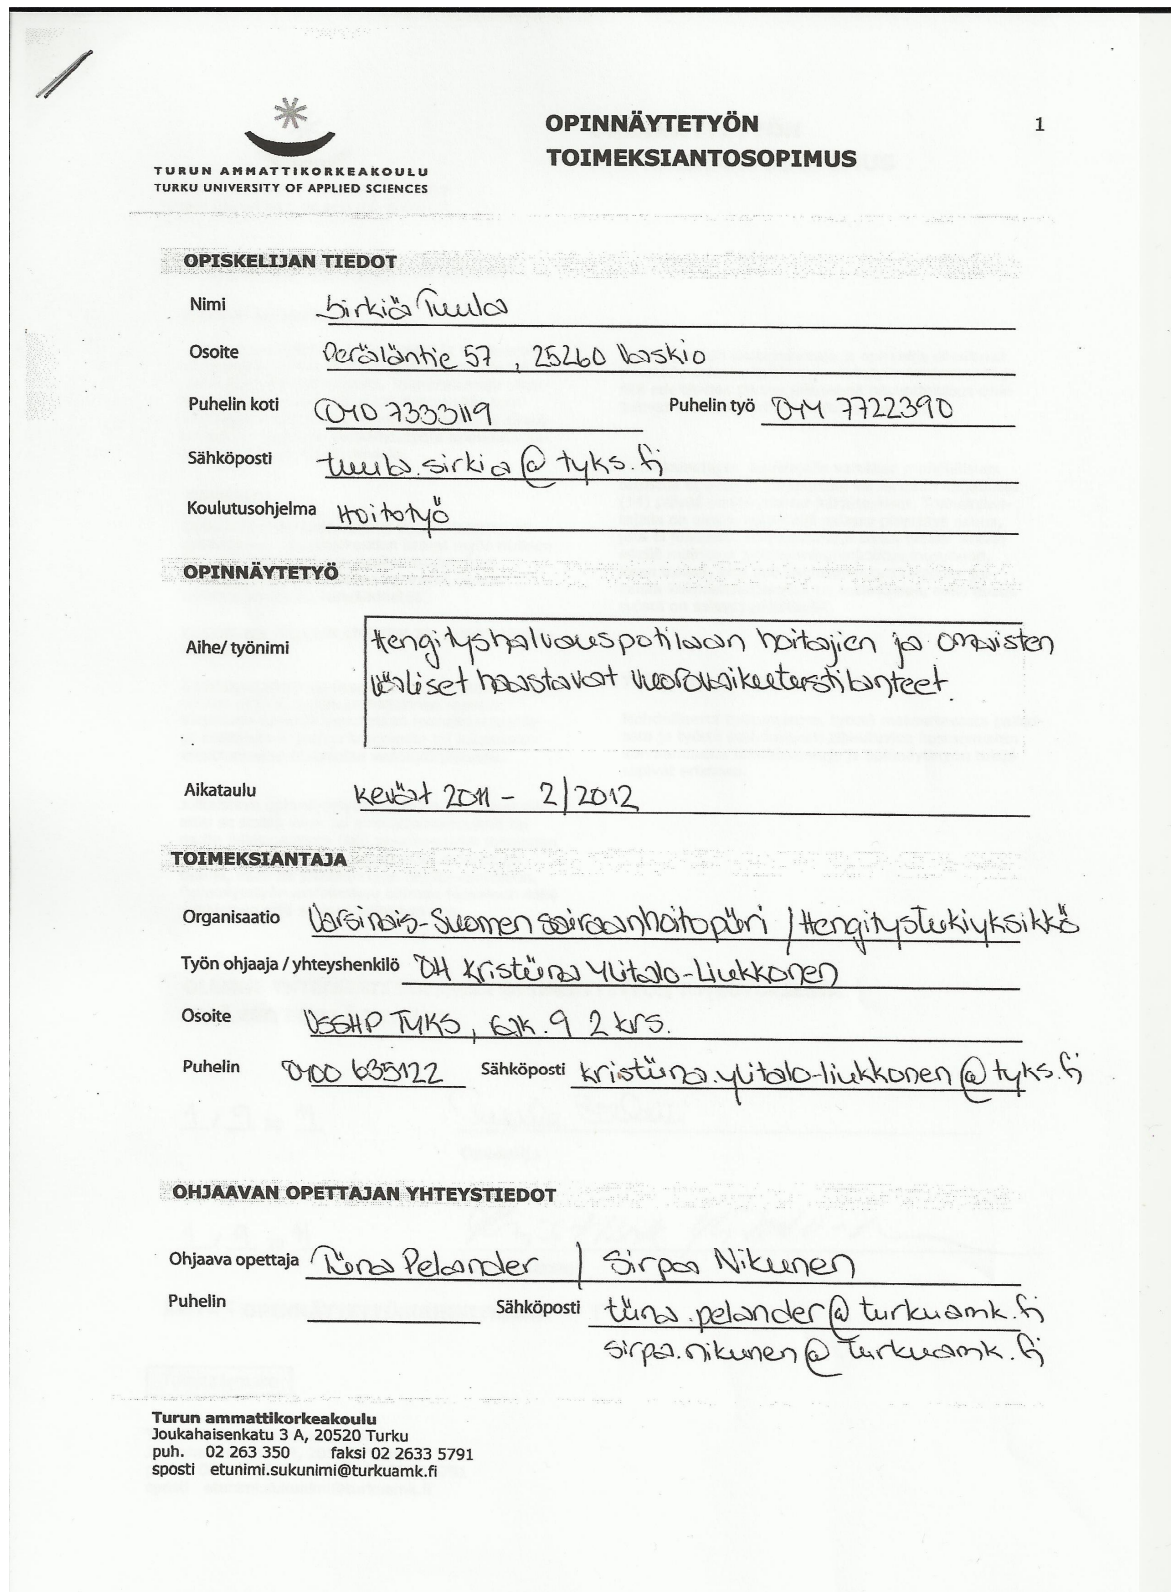 OPINNÄYTETYÖN 1
TOIMEKSIANTOSOPIMUS
TURUN AMMATTIKORKEAKOULU
TURKU UNIVERSITY OF APPLIED SCIENCES
OPISKELIJAN TIEDOT
Nimi Sirkiä Tuula
Osoite Peräläntie 57, 25260 Vaskio
Puhelin koti 040 7333119 Puhelin työ 044 7722390
Sähköposti tuula.sirkia@tyks.fi
Koulutusohjelma Hoitotyö
OPINNÄYTETYÖ
Aihe/ työnimi Hengityshalvauspotilaan hoitajien ja omaisten
väliset haastavat vuorovaikutustilanteet.
Aikataulu Kevät 2011 - 2/2012
TOIMEKSIANTAJA
Organisaatio Varsinais-Suomen sairaanhoitopiiri / Hengitystukiyksikkö
Työn ohjaaja / yhteyshenkilö OH Kristiina Ylitalo-Liukkonen
Osoite VSSHP TYKS, 9 2 krs.
Puhelin 0400 635122 Sähköposti kristiina.ylitalo-liukkonen@tyks.fi
OHJAAVAN OPETTAJAN YHTEYSTIEDOT
Ohjaava opettaja Tiina Pelander / Sirpa Nikunen
Puhelin Sähköposti tiina.pelander@turkuamk.fi
sirpa.nikunen@turkuamk.fi
Turun ammattikorkeakoulu
Joukahaisenkatu 3 A, 20520 Turku
puh. 02 263 350 faksi 02 2633 5791
sposti etunimi.sukunimi@turkuamk.fi